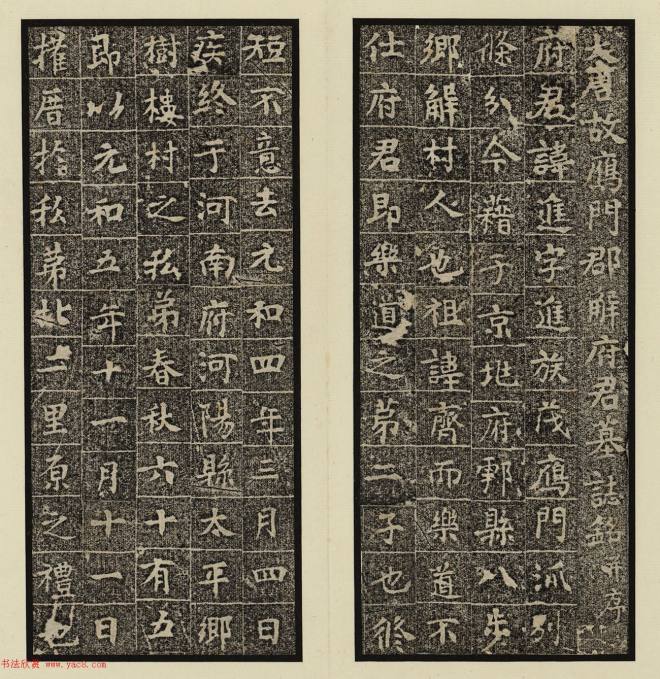 大唐故鴈門郡解府君墓誌銘并序
府君諱進字進族茂鴈門派別
條分今籍于京地府鄠縣八步
鄉解村人也祖諱齊而樂道不
仕府君即樂道之苐二子也修
短不意去元和四年二月四日
疾終于河南府河陽縣太平鄉
樹樓村之私苐春秋六十有五
即以元和五年十一月十一日
權厝於私苐北二里原之禮也
书法欣赏 www.yac8.com